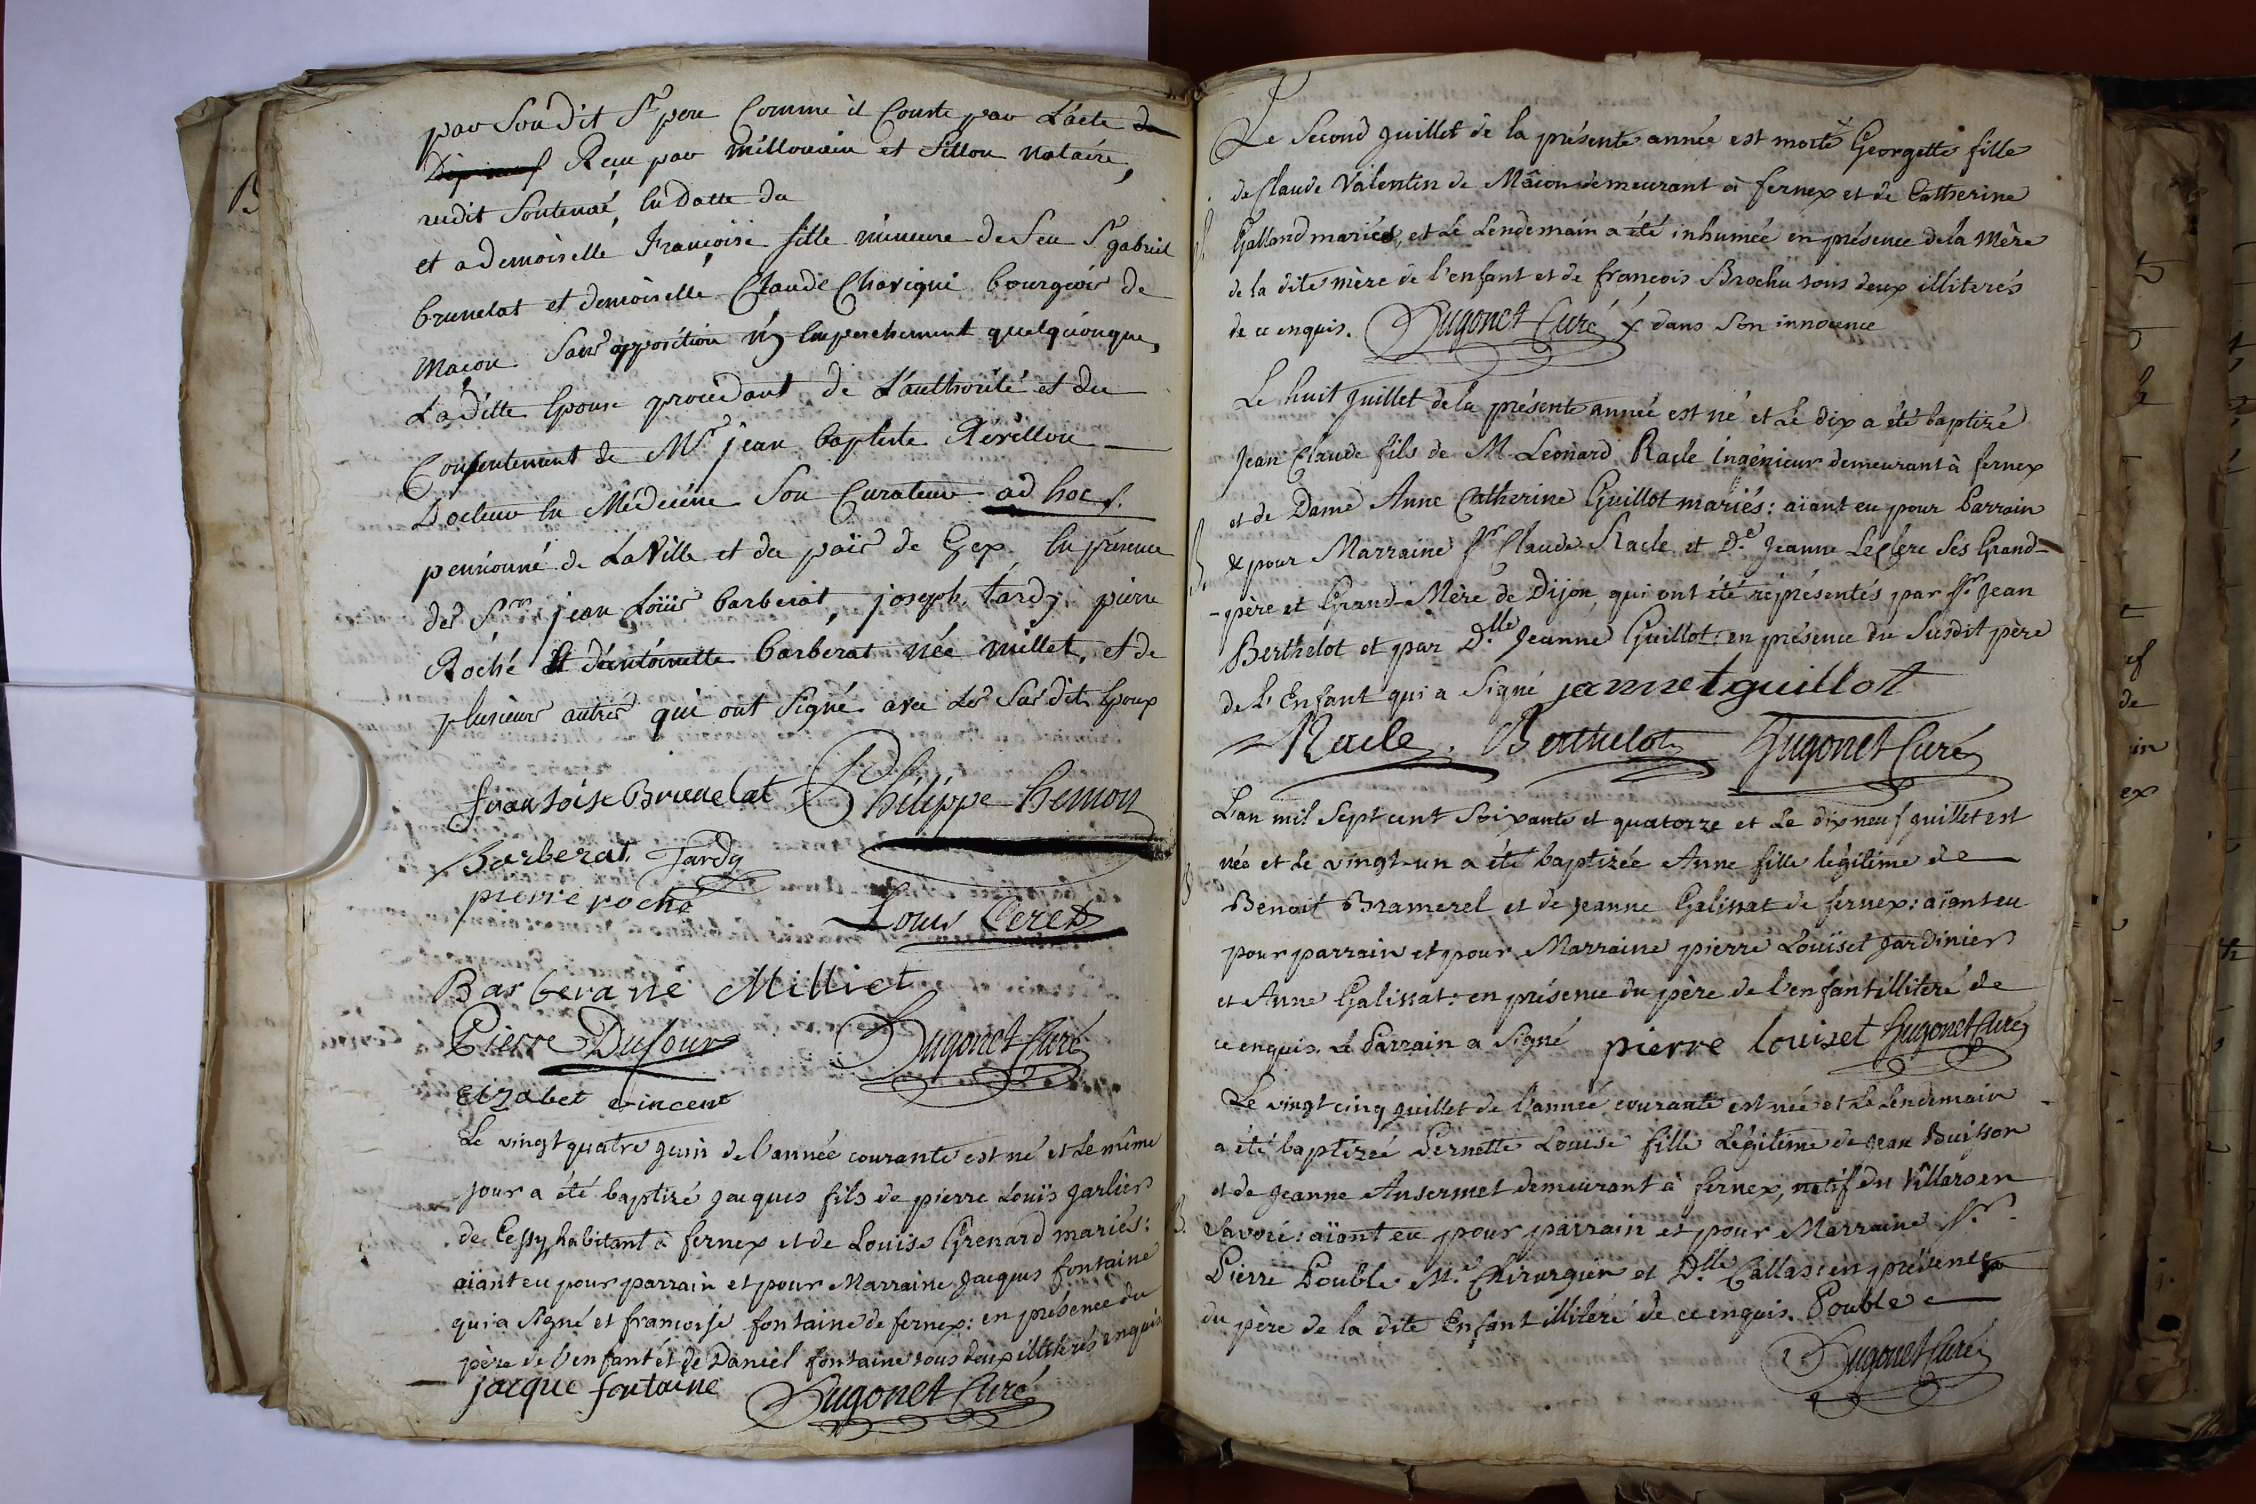 par Son dit Sr pere Comme il Conste par L'acte de
Reçu par Millouain et Sillon notaire,
rudit Soutenaé, En Datte du
et a demoiselle Françoise fille mineure de feu Sr gabriel
brunelat et demoiselle Claude Chavigni bourgeois de
Macon Sans opposition ny Empechement quelquonque,
La ditte Epouse procedant de L'authorité et du
Consentement de Mr jean baptiste Révillon
Docteur En Médecine Son Curateur ad hoc
pensionné de La Ville et du païs de Gex. En présence
des Srs jean Loüis barberat, joseph tardy pierre
Roché et d'antoinette barberat née millet, et de
plusieurs autres qui ont Signé avec Les Sus dit Epoux
fransoise Brunelat Philippe hemon
Barberat Tardy
pierre roché
Louis Ceret
Barbera né Milliet
Pierre Dufour Hugonet Curé
Elzabet vincent
Le vingt quatre juin de l'année courante est né et Le même
jour a été baptizé jacques fils de pierre Loüis jarlier
de Cessy habitant à fernex et de Loüise Grenard mariés:
aïant eu pour parrain et pour Marraine Jacques fontaine
qui a Signé et françoise fontaine de fernex: en présence du
père de l'enfant et de Daniel fontaine tous deux illiterés enquis
jacque fontaine Hugonet Curé
Le Second juillet de la présente année est morte Georgette fille
de Claude Valentin de Mâcon demeurant à fernex et de Catherine
Galland mariés, et Le Lendemain a été inhumée en présence de la Mère
de la dite mère de l'enfant et de françois Brochu tous deux illiterés
de ce enquis. Hugonet Curé x dans Son innocence
Le huit juillet de la présente année est né et Le dix a été baptizé
Jean Claude fils de M. Leonard Racle ingénieur demeurant à fernex
et de Dame Anne Catherine Guillot mariés: aïant eu pour Parrain
& pour Marraine Sr Claude Racle et De Jeanne Leclerc Ses Grand-
-père et Grand-Mère de Dijon, qui ont été représentés par Sr Jean
Berthelot et par Dlle Jeanne Guillot: en présence du Susdit père
de L'Enfant qui a Signé jannet guillot
Racle. Berthelot Hugonet Curé
L'an mil Sept cent Soixante et quatorze et Le dix neuf juillet est
née et Le vingt-un a été baptizée Anne fille légitime de
Benoit Bramerel et de jeanne Galissat de fernex: aïant eu
pour parrain et pour Marraine pierre Loüiset jardinier
et Anne Galissat: en présence du père de l'enfant illiteré de
ce enquis. Le Parrain a Signé pierre louiset Hugonet Curé
Le vingt cinq juillet de l'année courante est née et Le Lendemain
a été baptizée Pernette Loüise fille Légitime de Jean Buisson
et de Jeanne Ansermet demeurant à fernex, natif du Villars en
Savoie: aïant eu pour parrain et pour Marraine Sr
Pierre Pouble Me Chirurgien et Dlle Callas: en présence
du père de la dite Enfant illiteré de ce enquis. Pouble
Hugonet Curé